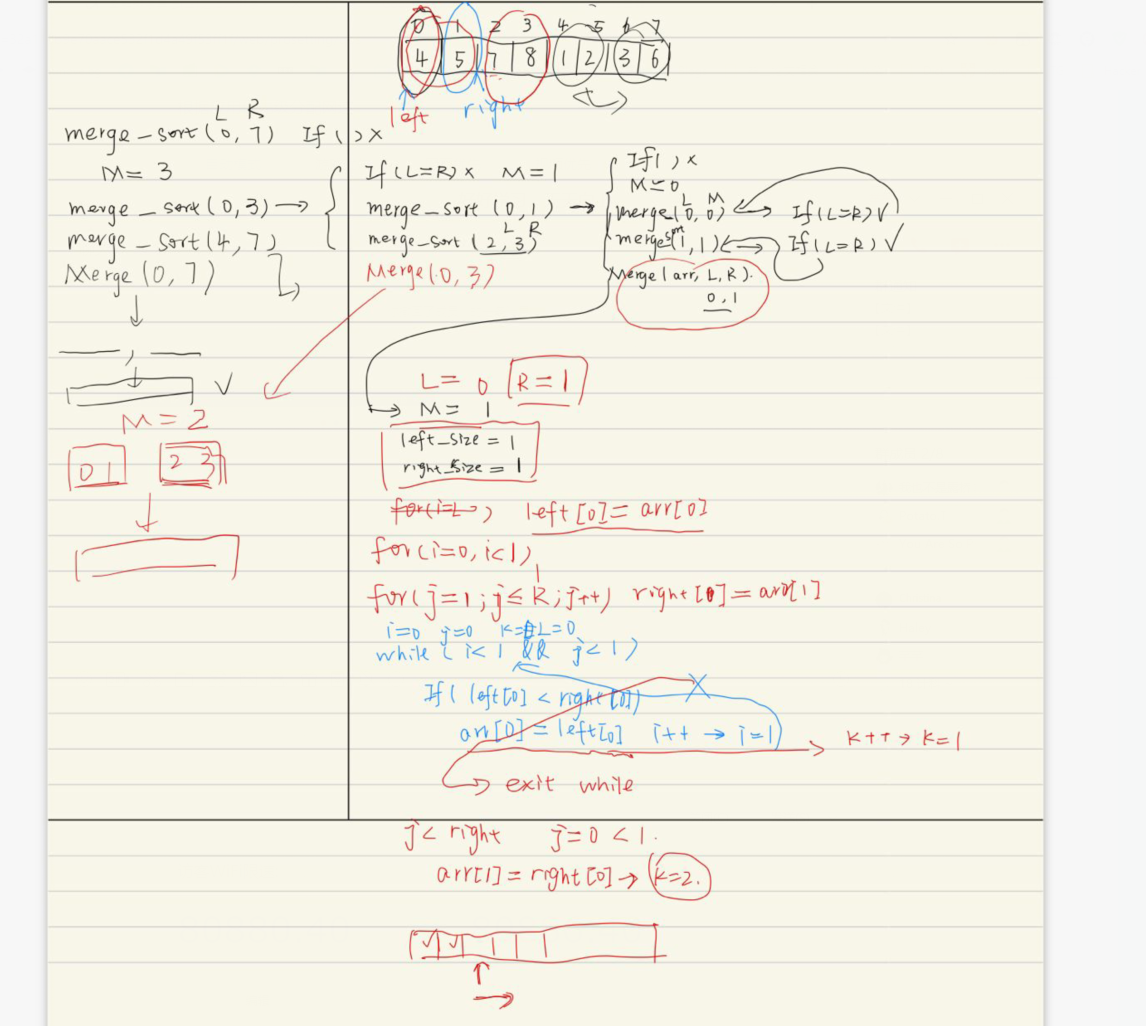 0 1 2 3 4 5 6 7
4 5 7 8 1 2 3 6
left right
L R
merge_sort(0,7) If()x
M= 3
merge_sort(0,3)→
merge_sort(4,7)
Merge(0,7)
___, ___
✓
M=2
0 1 2 3
If(L=R)x M=1
merge_sort (0,1) →
L R
merge_sort(2,3)
Merge(0,3)
If( )x
M=0
L M
merge(0,0) If(L=R)✓
mergesort(1,1) If(L=R)✓
Merge(arr, L, R).
0,1
L= 0 R=1
→ M= 1
left_size = 1
right_size = 1
for(i=L ) left[0]= arr[0]
for(i=0, i<1)
1
for(j=1; j≤R; j++) right[0]=arr[1]
i=0 j=0 k=L=0
while ( i<1 && j<1)
If( left[0] < right[0])
arr[0]=left[0] i++ → i=1
k++→k=1
exit while
j< right j=0 <1.
arr[1]=right[0]→ k=2.
✓ ✓